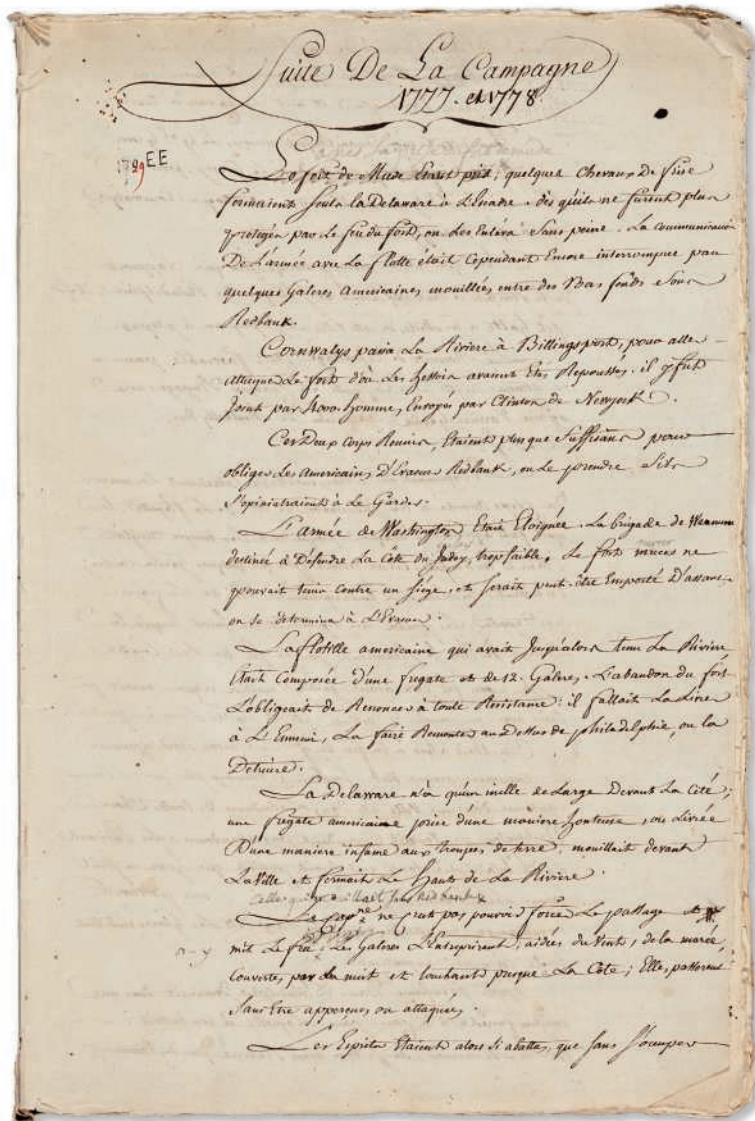 Suite De La Campagne
1777. et 1778.
1729 EE
Le fort de Mude Etait pris; quelques Chevaux De frise
fermaient seuls la Delaware à L'Escadre. dès qu'ils ne furent plus
protegés par Le feu du fort, on Les Enleva Sans peine. La communication
De L'armée avec La flotte était Cependant Encore interrompue par
quelques Galeres americaines mouillées entre des Bas fonds Sous
Redbank.
Cornwalys passa La Riviere à Billingsport, pour aller
attaquer Le fort d'où Les hessois avaient Etés Repoussés. il y fut
Joint par 4000 homme, Envoyés par Clinton de Newyork.
Ces Deux Corps Reunis, Etaient plus que Suffisans pour
obliger Les americains, D'Evacuer Redbank, ou Le prendre S'ils
S'opiniatraient à Le Garder.
L'armée de Washington Etait Eloignée. La brigade de
destinée à Défendre La Côte du Jersey, trop faible. Le fort ne
pouvait tenir contre un Siége, et serait peut-être Emporté D'assaut.
on se determina à L'Evacuer.
La flotille americaine qui avait Jusqu'alors tenu La Riviere
Etait Composée d'une fregate et de 12. Galeres. L'abandon du fort
L'obligeait de Renoncer à toute Resistance: il fallait La Livrer
à L'Ennemi, La faire Remonter au Dessus de philadelphie, ou la
Detruire.
La Delaware n'a qu'un mille de Large Devant La Cité;
une fregate americaine prise d'une maniere honteuse, ou Livrée
D'une maniere infame aux troupes de terre, mouillait devant
La Ville et fermait Le haut de La Riviere.
Celle qui était sous Redbank
Le Capne ne crut pas pouvoir forcer Le passage et y
mit Le feu. Les Galeres L'Entreprirent, aidées du Vent, de la marée,
Couvertes, par la nuit et touchant presque La Côte; Elles passerent
Sans Etre apperçues ou attaquées.
Les Esprits Etaient alors Si abattus, que sans S'occuper